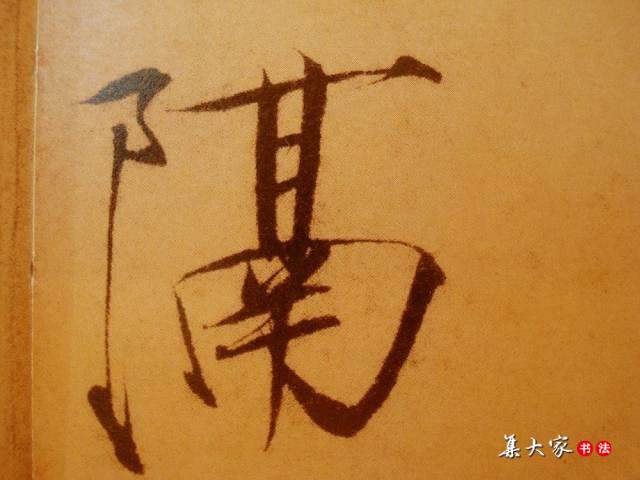 隔
集大家书法